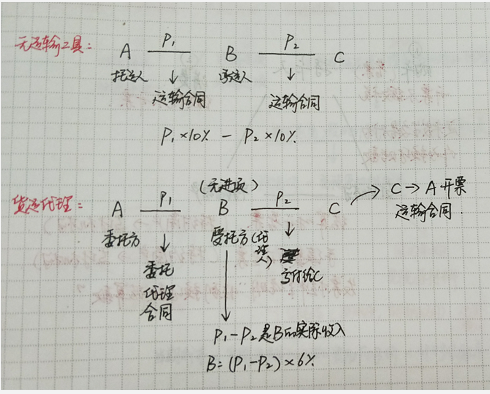 无运输工具： A P₁ B P₂ C
托运人 ↓ 承运人 ↓
运输合同 运输合同
P₁×10% － P₂×10%
货运代理： A P₁ B (无进项) P₂ C → C→A 开票
运输合同.
委托方 ↓ 受托方 (代理人) ↓
委托 ↓ 支付给C
代理
合同
P₁－P₂ 是B的实际收入
B=(P₁－P₂)×6%